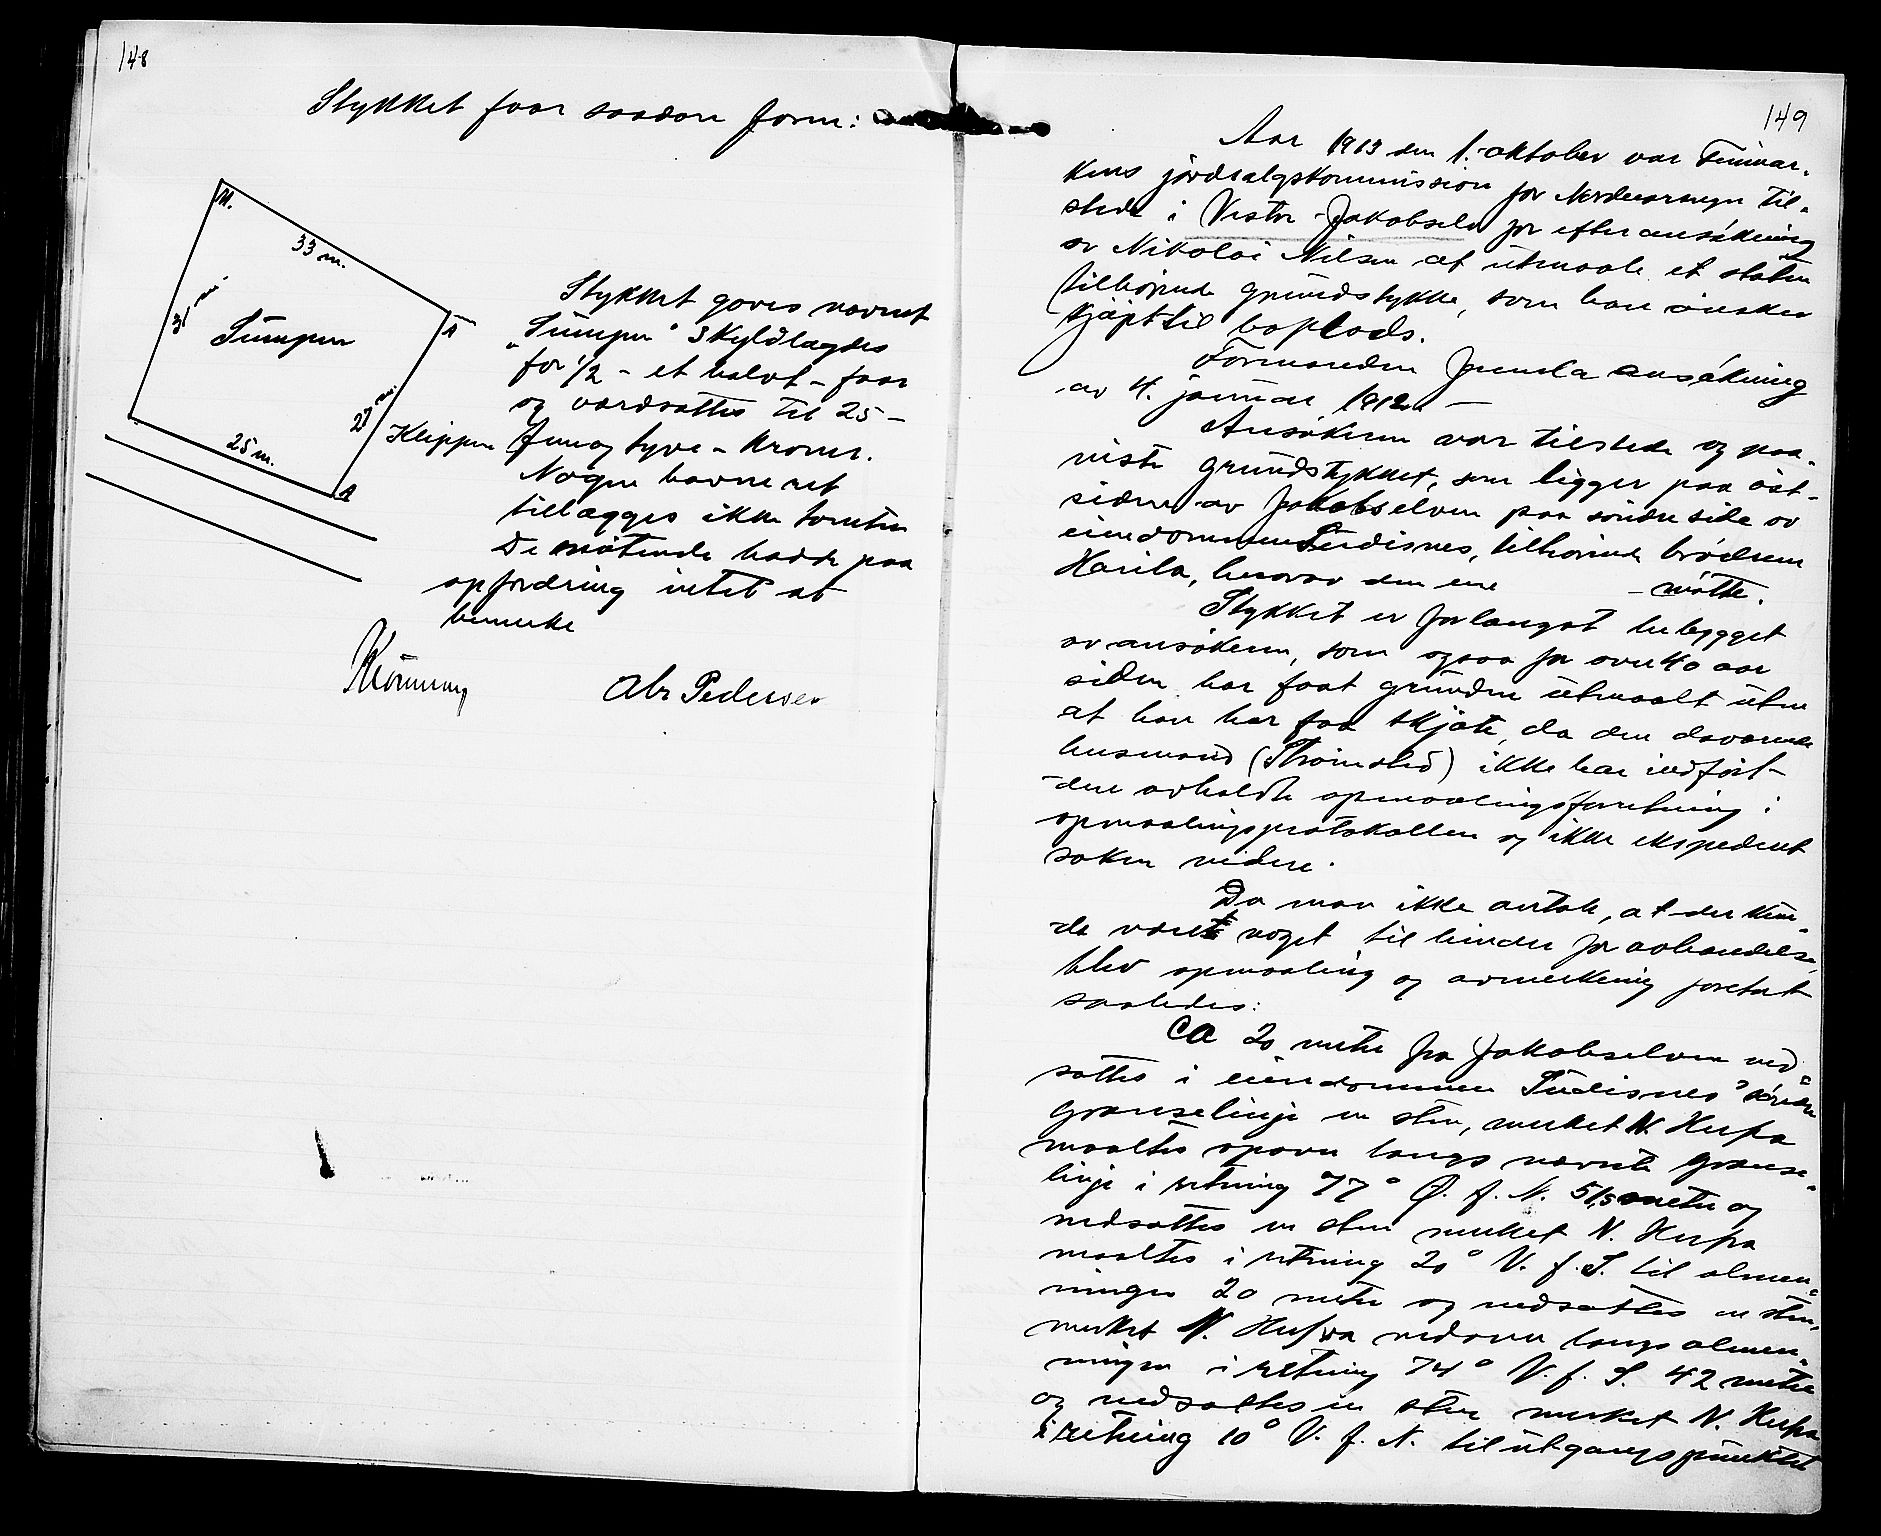 148
Stykket faar saadan form:
M.
33 m.
31 m.
Sumpen
A
27 m.
25 m.
A
Klippen
Stykket gaves navnet
„Sumpen" skyldlagdes
for 1/2 - et halvt - faar
og værdsattes til 25 -
fem og tyve - kroner.
Nogen havneret
tillægges ikke tomten
De møtende hadde paa
opfordring intet at
bemerke
Abr Pedersen
149
Aar 1913 den 1. oktober var Finmar-
kens jordsalgskommission for Nordvaranger til-
stede i Vestre-Jakobselv for efter ansøkning
av Nikolai Nilsen at utmaale et staten
tilhørende grundstykke, som han ønsker
kjøpt til boplads.
Formanden fremla ansøkning
av 4. januar 1912. -
Ansøkeren var tilstede og paa-
viste grundstykket, som ligger paa øst-
siden av Jakobselven paa søndre side av
eiendommen Tudisnes, tilhørende brødrene
Harila, hvorav den ene - møtte.
Stykket er forlængst bebygget
av ansøkeren, som ogsaa for over 40 aar
siden har faat grunden utmaalt uten
at han har faat skjøte, da den daværende
lensmand (Strømsted) ikke har indført
den avholdte opmaalingsforretning i
opmaalingsprotokollen og ikke ekspedert
saken videre.
Da man ikke antok, at der kun-
de være noget til hinder for avhændelse,
blev opmaaling og avmerkning foretat
saaledes:
Ca 20 meter fra Jakobselven ned-
sattes i eiendommen Tudisnes' søndre
grænselinje en sten, merket N. Herfra
maaltes opover langs nævnte grænse-
linje i retning 77° Ø. f. N. 51,5 meter og
nedsattes en sten merket N. Herfra
maaltes i retning 20° V. f. S. til almen-
ningen 20 meter og nedsattes en sten,
merket N. Herfra nedover langs almen-
ningen i retning 74° V. f. S. 42 meter
og nedsattes en sten merket N. Herfra
i retning 10° V. f. N. til utgangspunktet